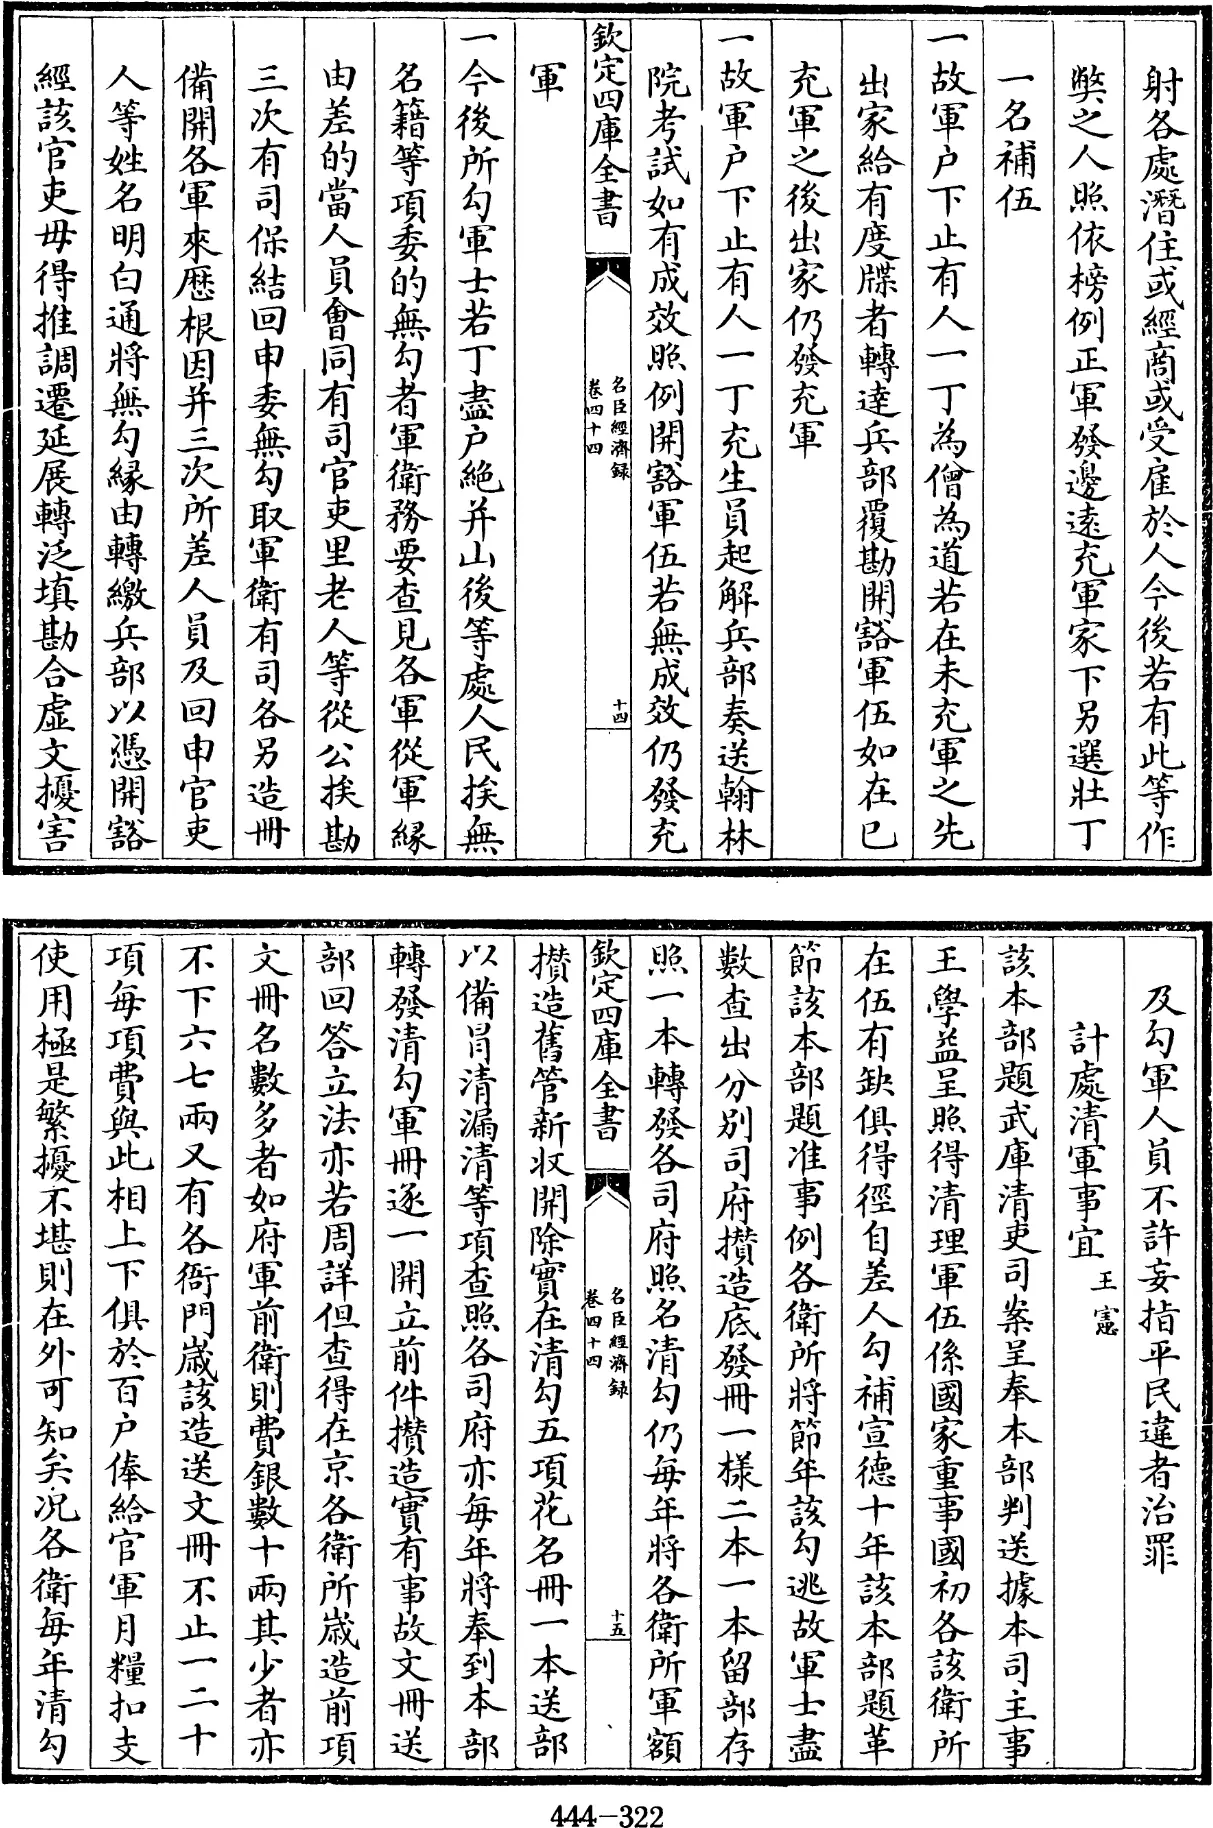 射各處潛住或經商或受雇於人今後若有此等作
弊之人照依榜例正軍發邊遠充軍家下另選壯丁
一名補伍
一故軍户下止有人一丁為僧為道若在未充軍之先
出家給有度牒者轉達兵部覆勘開豁軍伍如在已
充軍之後出家仍發充軍
一故軍户下止有人一丁充生員起解兵部奏送翰林
院考試如有成效照例開豁軍伍若無成效仍發充
欽定四庫全書
名臣經濟録
卷四十四
十四
軍
一今後所勾軍士若丁盡户絶并山後等處人民挨無
名籍等項委的無勾者軍衛務要查見各軍從軍縁
由差的當人員會同有司官吏里老人等從公挨勘
三次有司保結回申委無勾取軍衛有司各另造冊
備開各軍來歴根因并三次所差人員及回申官吏
人等姓名明白通將無勾縁由轉繳兵部以憑開豁
經該官吏毋得推調遷延展轉泛填勘合虛文擾害
及勾軍人員不許妄指平民違者治罪
計處清軍事宜 王憲
該本部題武庫清吏司案呈奉本部判送據本司主事
王學益呈照得清理軍伍係國家重事國初各該衛所
在伍有缺俱得徑自差人勾補宣德十年該本部題革
節該本部題准事例各衛所將節年該勾逃故軍士盡
數查出分别司府攢造底發冊一様二本一本留部存
照一本轉發各司府照名清勾仍每年將各衛所軍額
欽定四庫全書
名臣經濟録
卷四十四
十五
攢造舊管新收開除實在清勾五項花名冊一本送部
以備冐清漏清等項查照各司府亦每年將奉到本部
轉發清勾軍冊逐一開立前件攢造實有事故文冊送
部回答立法亦若周詳但查得在京各衛所嵗造前項
文冊名數多者如府軍前衛則費銀數十兩其少者亦
不下六七兩又有各衙門嵗該造送文冊不止一二十
項每項費與此相上下俱於百户俸給官軍月糧扣支
使用極是繁擾不堪則在外可知矣况各衛每年清勾
444-322